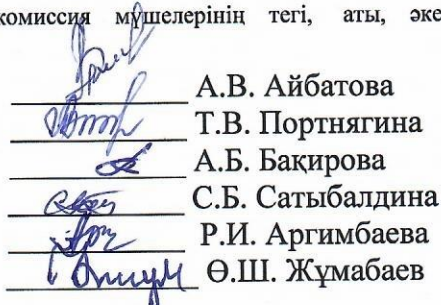 комиссия мүшелерінің тегі, аты, әке
А.В. Айбатова
Т.В. Портнягина
А.Б. Бақирова
С.Б. Сатыбалдина
Р.И. Аргимбаева
Ө.Ш. Жұмабаев